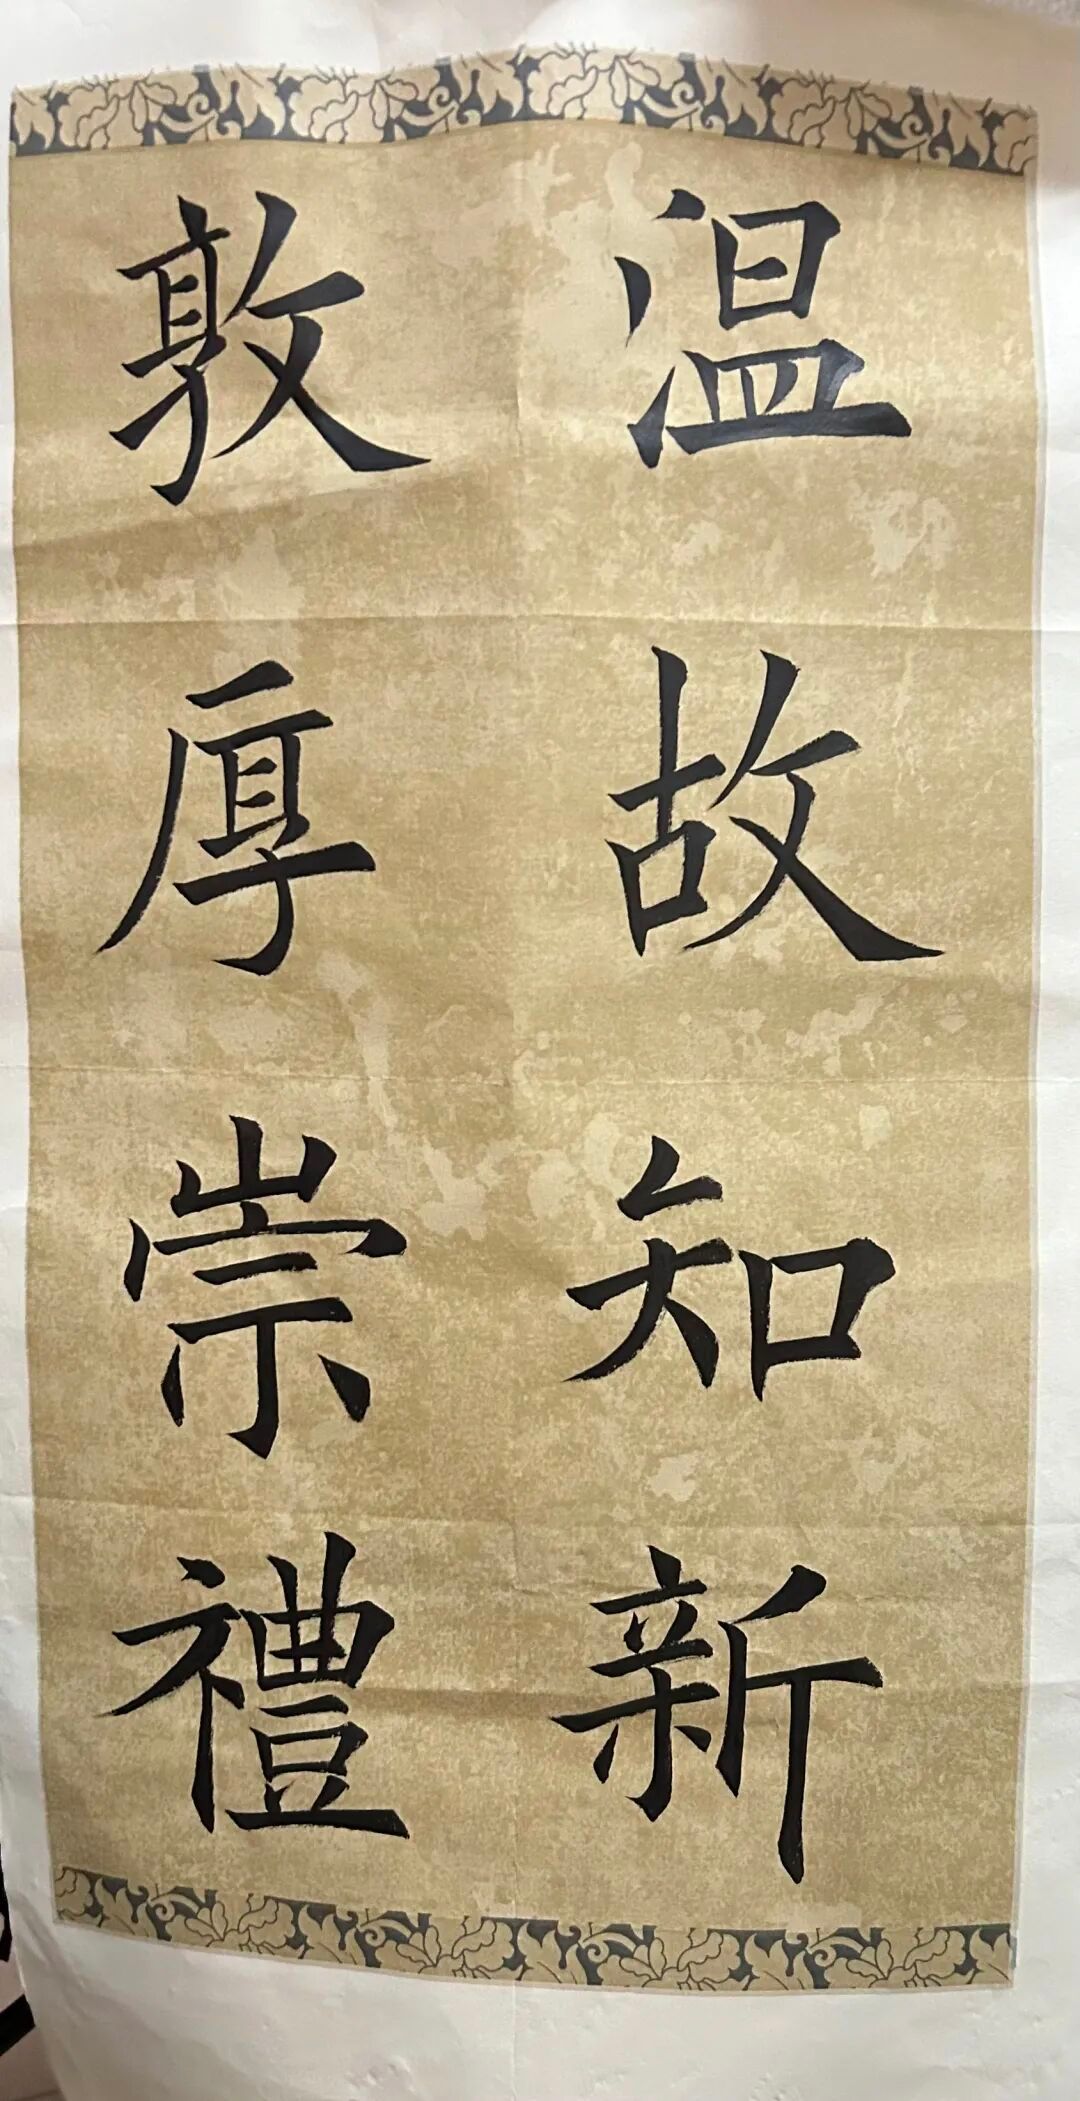 温故知新
敦厚崇禮